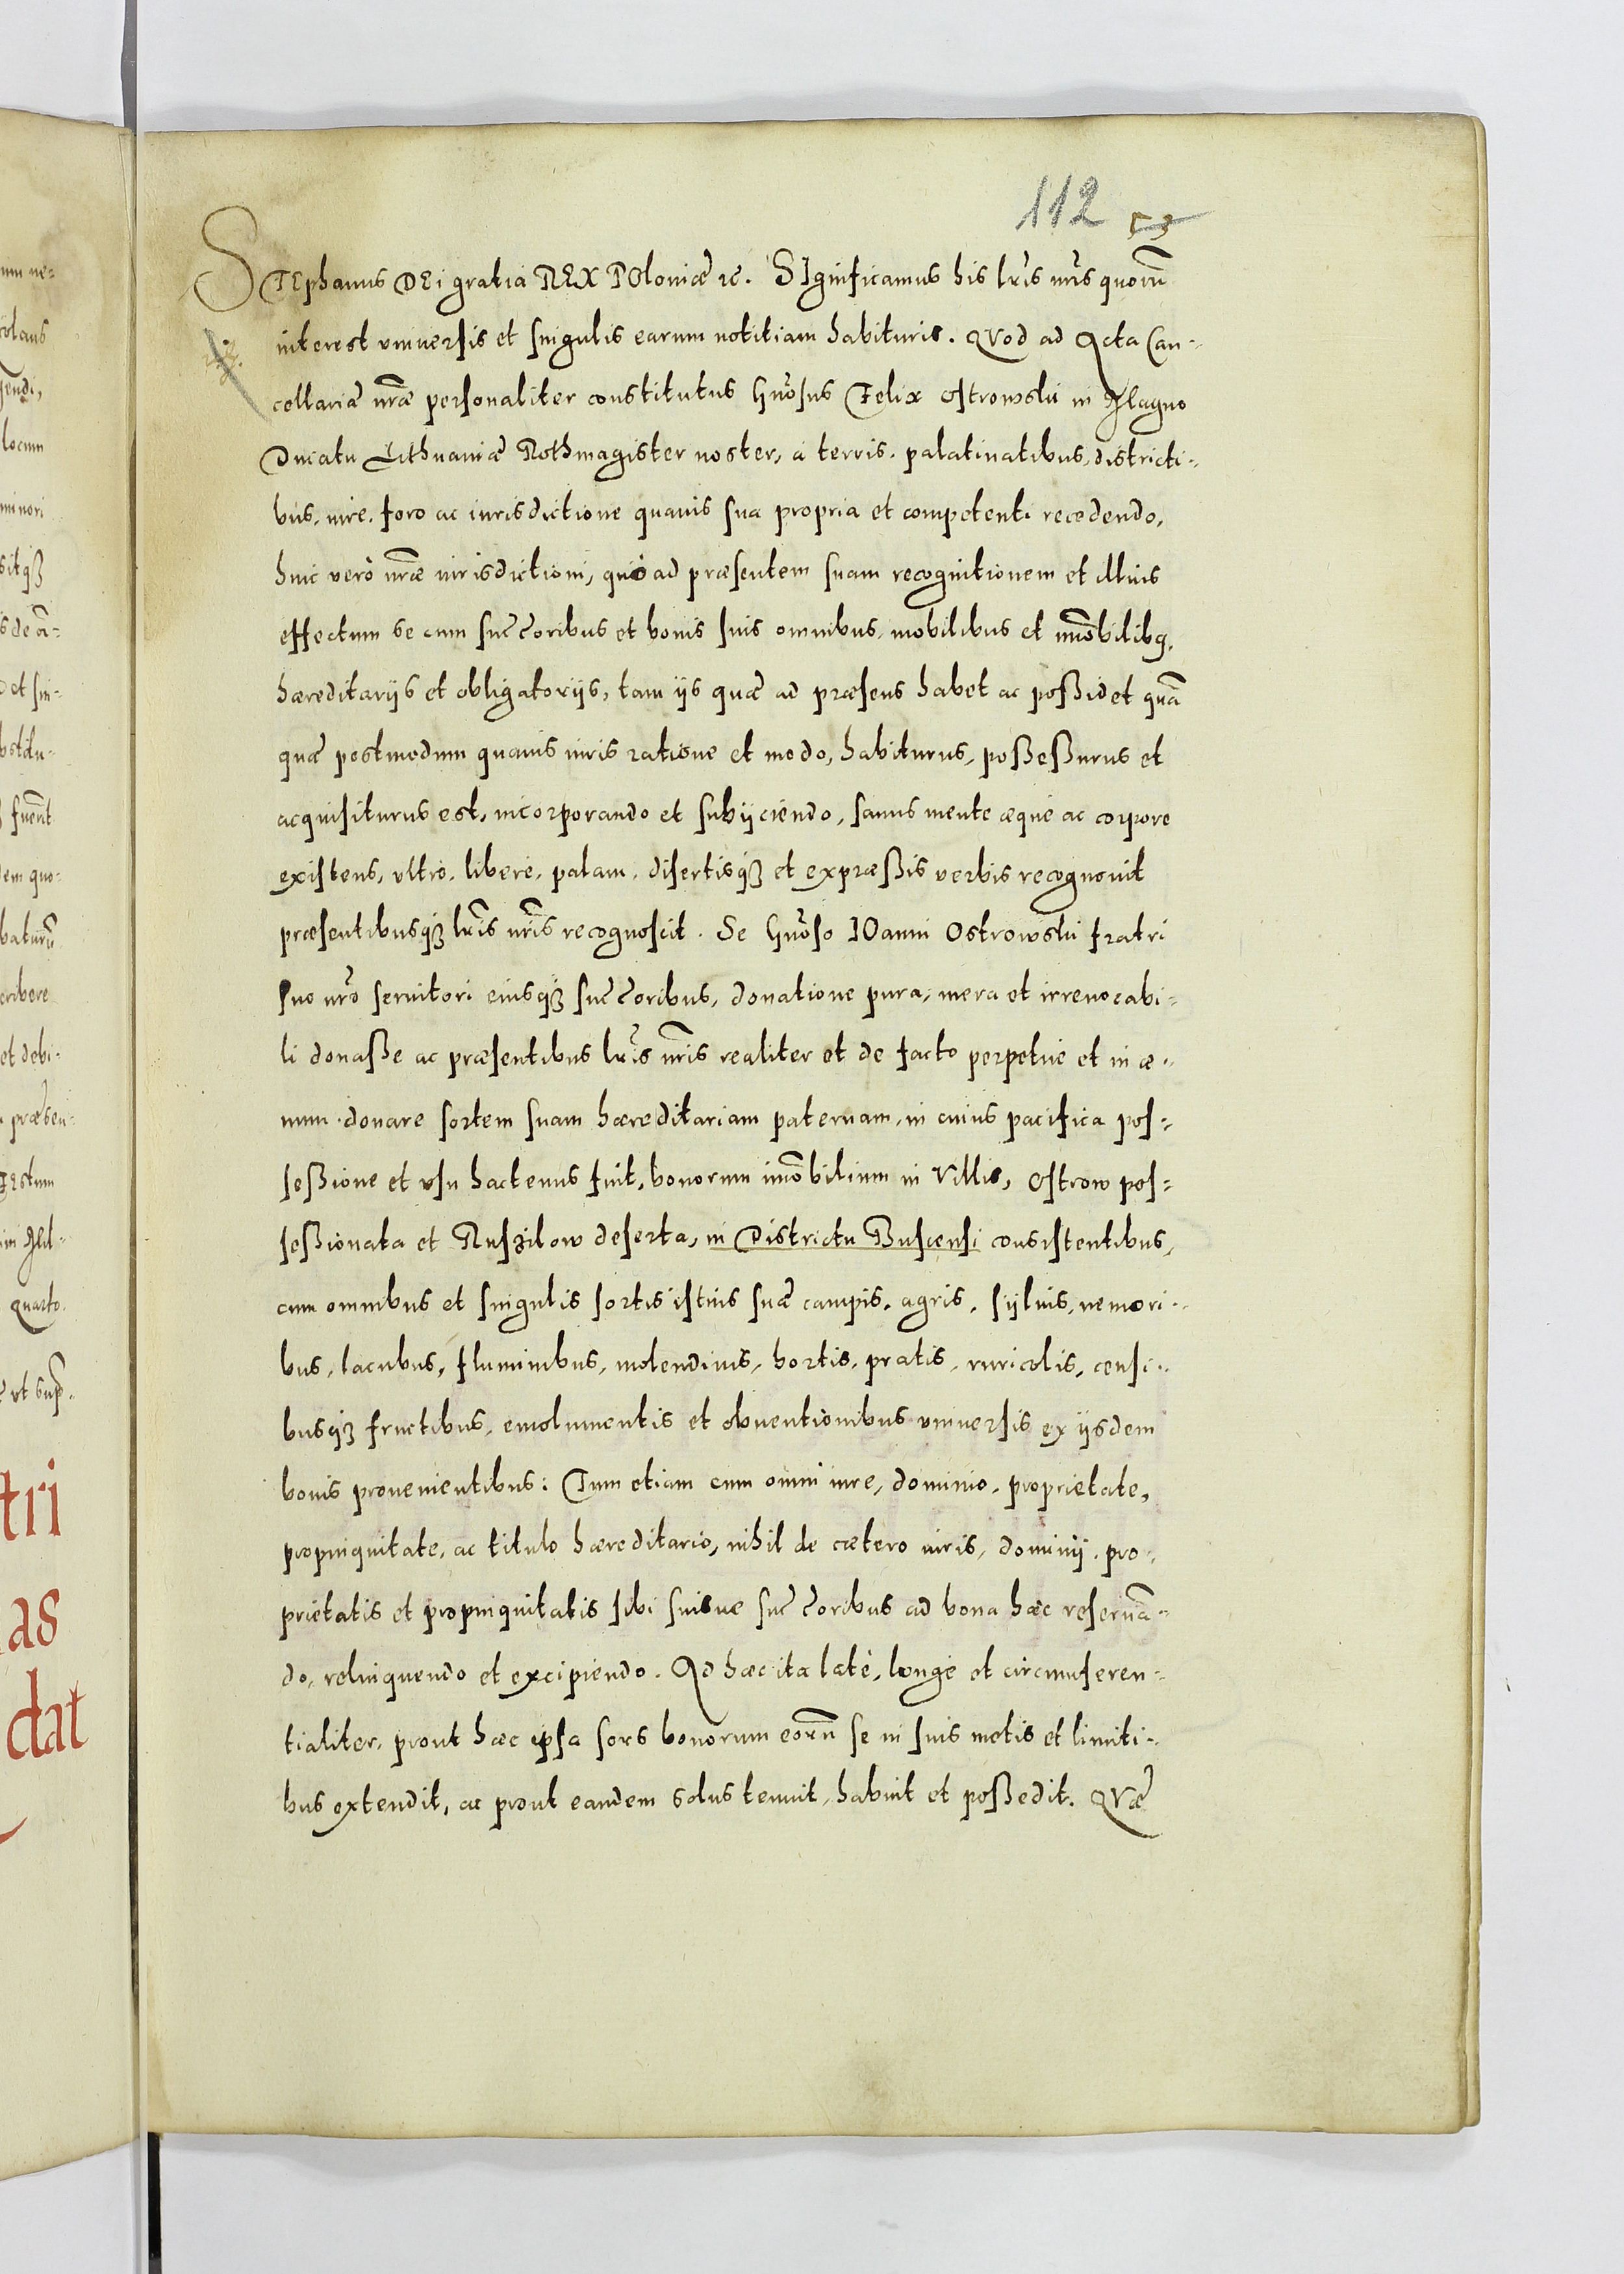 112 53
STEphanus DEi gratia REX POloniæ ꝛc. SIgnificamus his lr̃is nr̃is quorũ
interest vniuersis et singulis earum notitiam habituris. QVod ad Acta Can-
cellariæ nr̃æ personaliter constitutus Gñosus Felix Ostrowski in Magno
Ducatu Lithuaniæ Rothmagister noster, a terris, palatinatibus, districti-
bus, iure, foro ac iurisdictione quauis sua propria et competenti recedendo,
huic verò nr̃æ iurisdictioni, quò ad præsentem suam recognitionem et illius
effectum se cum suc̃c̃oribus et bonis suis omnibus, mobilibus et im̃obilibꝫ,
hæreditarijs et obligatorijs, tam ijs quæ ad præsens habet ac poßidet quã
quæ postmodum quauis iuris ratione et modo, habiturus, poßeßurus et
acquisiturus est, incorporando et subijciendo, sanus mente æque ac corpore
existens, vltrò, liberè, palam, disertisqꝫ et expræßis verbis recognouit
præsentibusqꝫ lr̃is nr̃is recognoscit. Se Gñoso IOanni Ostrowski fratri
suo nr̃o seruitori eiusqꝫ suc̃c̃oribus, donatione pura, mera et irreuocabi-
li donaße ac præsentibus lr̃is nr̃is realiter et de facto perpetuè et in æ-
uum donare sortem suam hæreditariam paternam, in cuius pacifica pos-
seßione et vsu hactenus fuit, bonorum im̃obilium in Villis, Ostrow pos-
seßionata et Ruszilow deserta, in Districtu Buscensi consistentibus,
cum omnibus et singulis sortis istius suæ campis, agris, syluis, nemori-
bus, lacubus, fluminibus, molendinis, hortis, pratis, ruricolis, censi-
busqꝫ fructibus, emolumentis et obuentionibus vniuersis ex ijsdem
bonis prouenientibus: Tum etiam cum omni iure, dominio, proprietate,
propinquitate, ac titulo hæreditario, nihil de cætero iuris, dominij, pro-
prietatis et propinquitatis sibi suisue suc̃c̃oribus ad bona hæc reseruã-
do, relinquendo et excipiendo. Ad hæc ita latè, longè et circumferen-
tialiter, prout hæc ipsa sors bonorum eorũ se in suis metis et limiti-
bus extendit, ac prout eandem solus tenuit, habuit et poßedit. QVæ